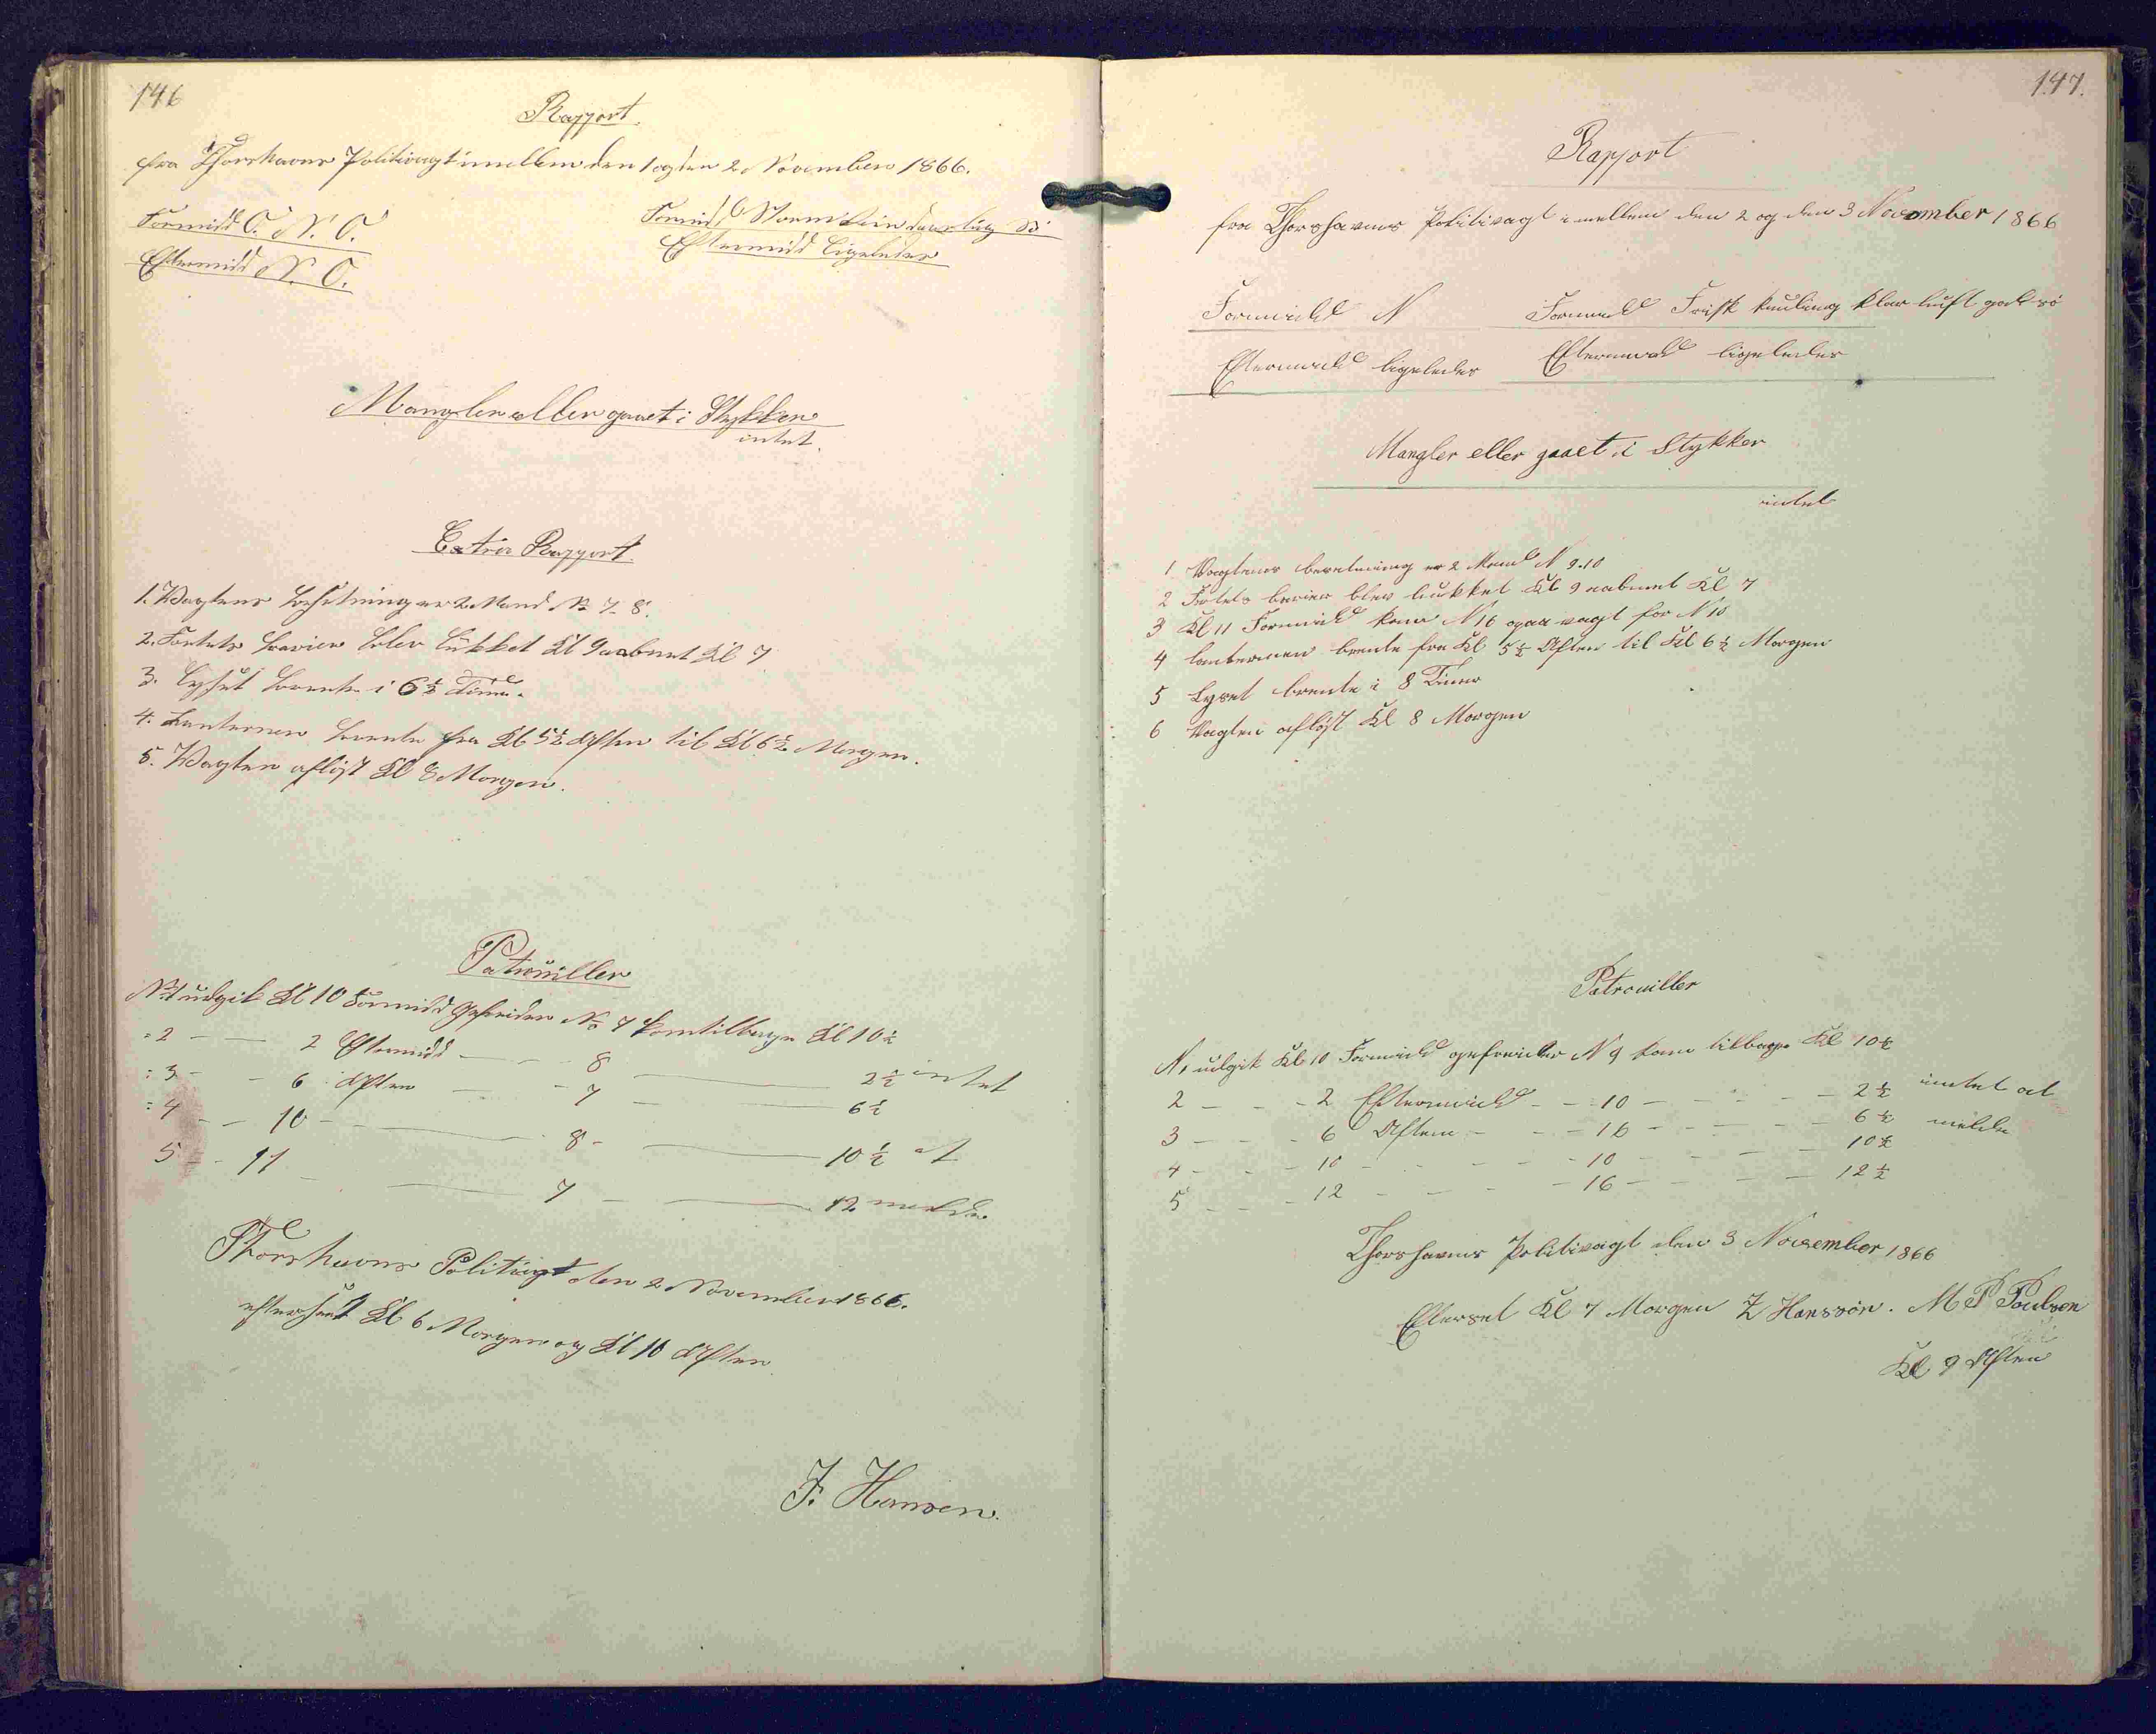 146
Rapport
fra Thorshavns Politivagt imellem den 1 og den 2 November 1866.
Formidd O. N. O.
Formidd Storm daarlig Sö
Eftermidd N. O.
Eftermidd ligeledes
Mangler eller gaaet i Stykker
intet.
Extra Rapport
1. Vagtens besetning er 2 Mand No 7. 8.
2. Fortets barier blev lukket Kl 9 aabnet Kl 7
3. Lyset brente i 6½ Time.
4. Lanternen brente fra Kl 5½ Aften til Kl 6½ Morgen.
5. Vagten aflöst Kl 8 Morgen.
Patrouiller
No 1 udgik Kl 10 Formidd Gefreider No 7 kom tilbage Kl 10½
=2 — — 2 Eftermidd — — 8 — 2½ intet
=3 — — 6 Aften — — 7 — 6½
=4 — — 10 — — 8 — 10½ at
5 — — 11 — — 7 — 12 melde
Thorshavns Politivagt den 2 November 1866.
efterseet Kl 6 Morgen og Kl 10 Aften
J. Hansen.
147.
Rapport
fra Thorshavns Politivagt imellem den 2 og den 3 November 1866
Formidd N
Formidd Frisk kuling klar luft god sö
Eftermidd ligeledes
Eftermidd ligeledes
Mangler eller gaaet i Stykker
intet
1 Vagtens besetning er 2 Mand N 9-10
2 Fortets barier blev lukket Kl 9 aabnet Kl 7
3 Kl 11 Formidd kom N 16 paa vagt for N 10
4 lanternen brente fra Kl 5½ Aften til Kl 6½ Morgen
5 Lyset brente i 8 Timer
6 Vagten aflöst Kl 8 Morgen
Patrouiller
N 1 udgik Kl 10 Formidd gefreider N 9 kom tilbage Kl 10½
2 — — 2 Eftermidd — — 10 — — 2½ intet at
3 — — 6 Aften — — 16 — — 6½ melde
4 — — 10 — — 10 — — 10½
5 — — 12 — — 16 — — 12½
Thorshavns Politivagt den 3 November 1866
Efterset Kl 7 Morgen Z Hanssön. M P Poulsen
Kl 9 Aften